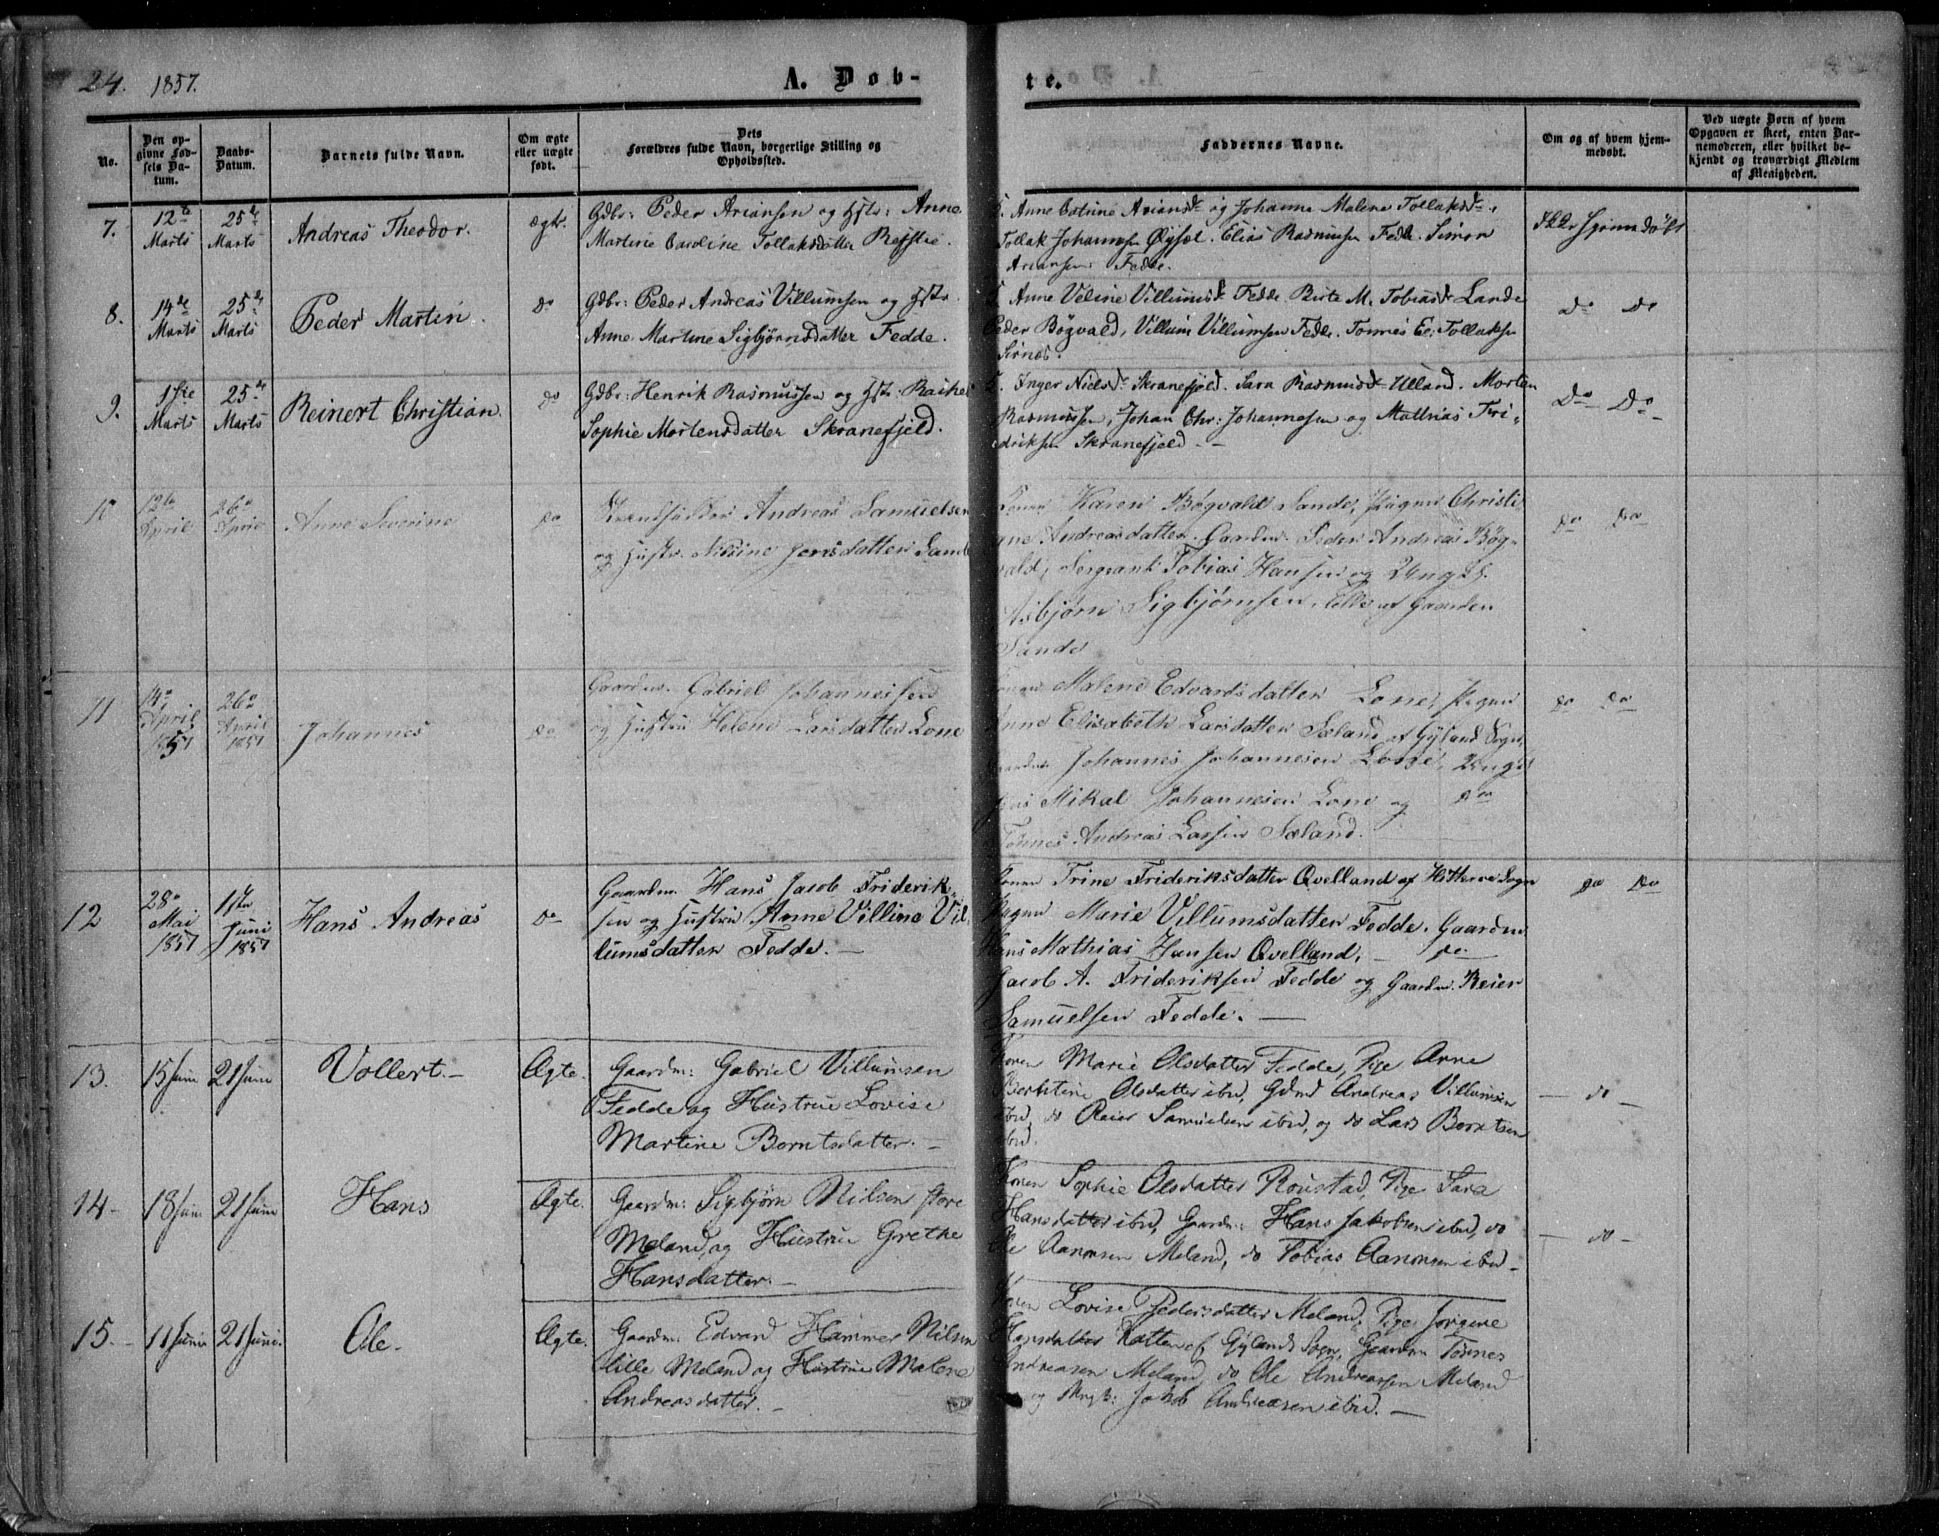 24. 1857.
A. Døb-
te.
No.
Den op-
givne Fød-
sels Da-
tum.
Daabs-
Datum.
Barnets fulde Navn.
Om ægte
eller uægte
født.
Dets
Forældres fulde Navn, borgerlige Stilling og
Opholdssted.
Faddernes Navne.
Om og af hvem hjem-
medøbt.
Ved uægte Børn af hvem
Opgaven er skeet, enten Bar-
nemoderen, eller hvilket be-
kjendt og troværdigt Medlem
af Menigheden.
7.
12te
Marts
25de
Marts
Andreas Theodor.
ægte.
Gdbr: Peder Ariansen og Hstr: Anne
Martine Caroline Tollaksdatter
Anne Catrine Ariansd og Johanne Malene Tollaksd
Tollak Johannesen Øysæl. Elias Rasmussen Fedde. Simon
Ariansen Fedde.
8.
14de
Marts
25de
Marts
Peder Martin.
do
Gdbr: Peder Andreas Villumsen og Hstr.
Anne Martine Sigbjørnsdatter Fedde.
Anne Veline Villumsd Fedde Birte M. Tobiasd Lande
Peder Bøgvald, Villum Villumsen Fedde. Tønnes Tollaksen
Sirnes.
Do Do
9.
1ste
Marts
25de
Marts
Reinert Christian.
do
Gdbr: Henrik Rasmussen og Hstr: Rachel
Sophie Mortensdatter Skranefjeld.
Inger Nielsd Skranefjeld. Sara Rasmusd Ulland. Morten
Rasmussen, Johan Chr: Johannesen og Mathias Fri-
driksen Skranefjeld. -
Do Do
10
12te
April
26de
April
Anne Severine
do
Andreas Samuelsen
og Hustr. Nilsine Jensdatter Sande
Konen Karen Bøgvald Sande, Pigen Christi
ne Andreasdatter. Gaardm Peder Andreas Bøg-
vald, Sergeant Tobias Hansen og Ungk.
Asbjørn Sigbjørnsen, Alle af Gaarden
Sande
do do
11
14de
April
1857
26de
April
1857
Johannes
do
Gaardm. Gabriel Johannessen
og Hustru Helene Larsdatter Lone
Konen Malene Edvardsdatter Lone, Pigen
Anne Elisabeth Larsdatter Sæland af Gyland Sogn,
Gaardm Johannes Johannesen Lone, Ungk
Mikal Johannesen Lone og do
Tønnes Andreas Larsen Sæland.
do do
12
28de
Mai
1857
1ste
Juni
1857
Hans Andreas
do
Gaardm. Hans Jacob Friderik-
sen og Hustru Anne Villine Vil-
lumsdatter Fedde. -
Konen Trine Frideriksdatter Qvelland af Hitterø Sogn
Pigen Marie Villumsdatter Fedde. Gaardm
Hans Mathias Hansen Qvelland, - do
Jacob A. Frideriksen Fedde og Gaardm. Reier
Samuelsen Fedde. -
do do
13.
15 Juni
21 Juni
Vollert. -
Ægte.
Gaardm: Gabriel Villumsen
Fedde og Hustrue Lovise
Martine Berntsdatter. -
Konen Marie Olsdatter Fedde, Pige Anne
Berntine Olsdatter ibd, Gdmd Andreas Villumsen
ibd, do Reier Samuelsen ibd, og do Lars Berntsen
ibd.
- do -
14 -
18 Juni
21 Juni
Hans
Ægte.
Gaardm: Sigbjørn Nilsen store
Meland, og Hustrue Grethe
Hansdatter. -
Konen Sophie Olsdatter Roustad, Pige Sara
Hansdatter ibd, Gaardm: Hans Jakobsen ibd, do
Ole Aanonsen Meland, do Tobias Aanonsen ibd -
- do -
15. -
11 Juni
21 Juni.
Ole.
Ægte.
Gaardm: Edvard Hammer Nilsen
lille Meland og Hustrue Malene
Andreasdatter. -
Konen Lovise Pedersdatter Meland, Pige Jorgine
Hansdatter af Gylands Sogn, Gaardm Tønnes
Andreasen Meland, do Ole Andreassen Meland
og Ungk: Jakob Andreasen ibd. -